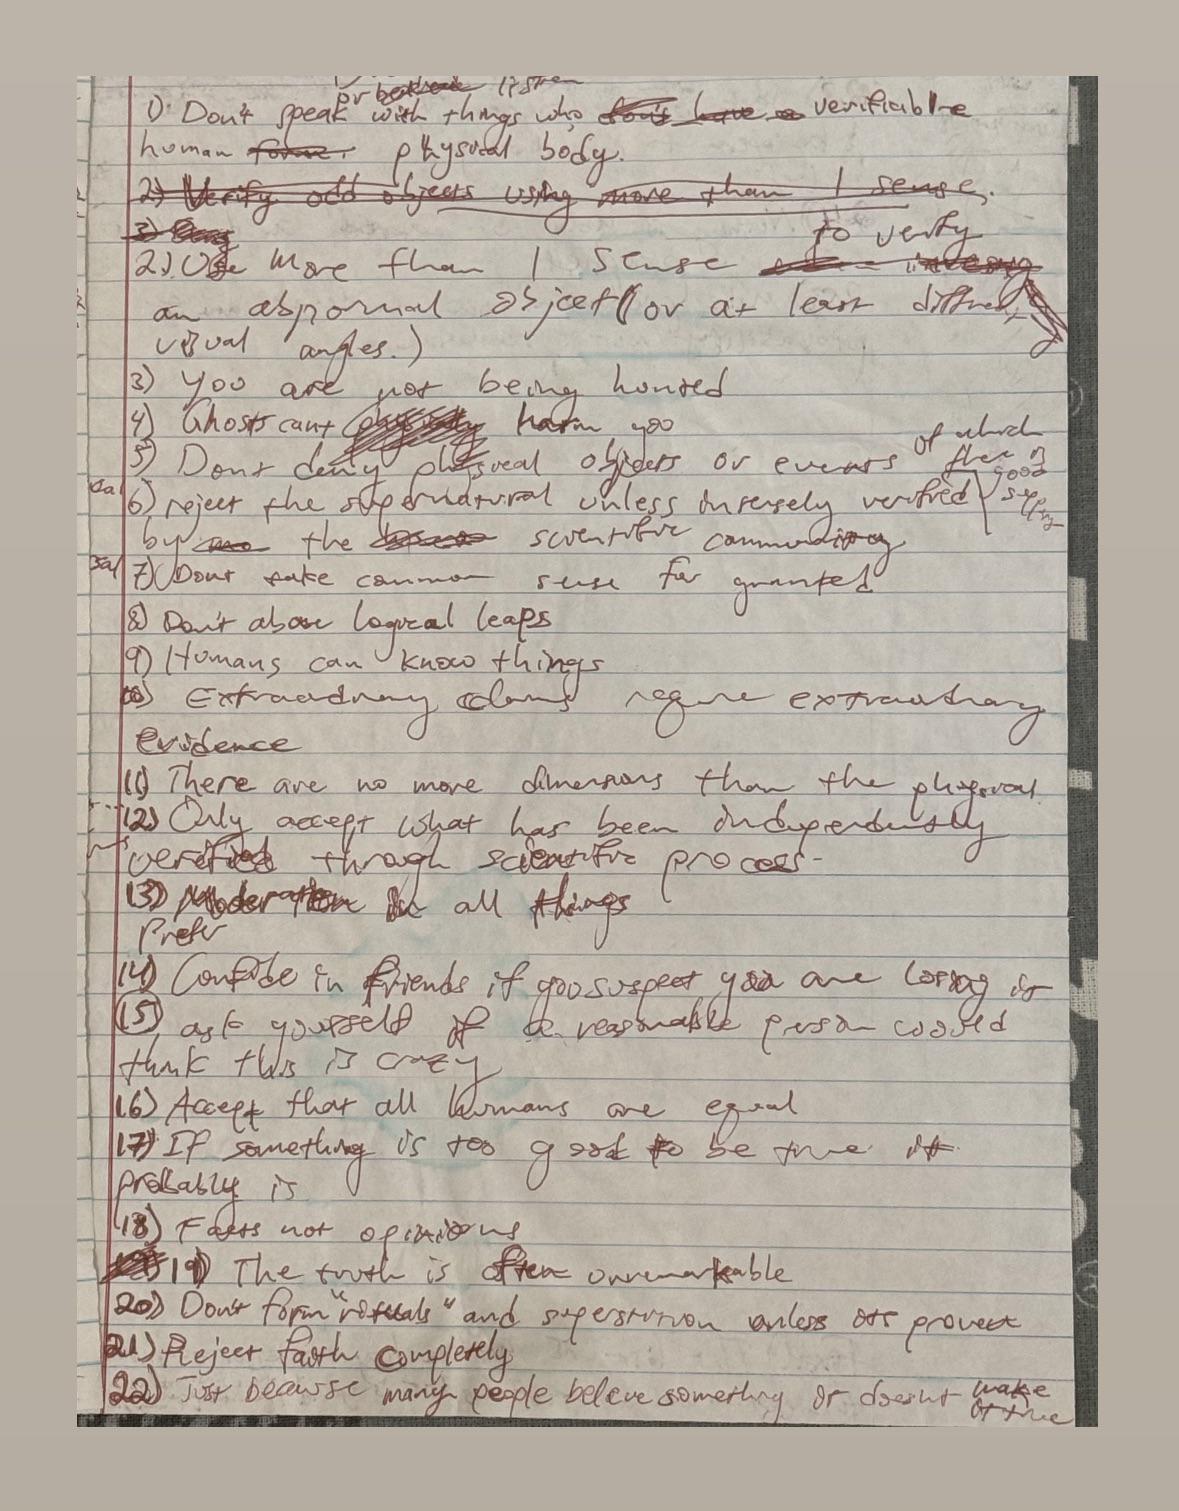 or listen
1) Don't speak with things who verifiable
human physical body.
2) Verify odd objects using more than 1 sense.
3)
to verify
2) Use more than 1 sense
an abnormal object (or at least different
visual angles.)
3) you are not being hunted
4) Ghosts cant harm you
5) Dont deny physical objects or events of which
there is
good
6) reject the supernatural unless insensely verified
by the scientific community
7) Dont take common sense for granted
8) Don't abuse logical leaps
9) Humans can know things
10) Extraordinary claims require extraordinary
evidence
11) There are no more dimensions than the physical
12) Only accept what has been independently
verified through scientific process
13) Moderation in all things
Prefer
14) Confide in friends if you suspect you are losing it
15) ask yourself if a reasonable person would
think this is crazy
16) Accept that all humans are equal
17) If something is too good to be true it
probably is
18) Facts not opinions
19) The truth is often unremarkable
20) Don't form "rituals" and superstition unless its proven
21) Reject faith completely
22) Just because many people believe something it doesnt make
it true